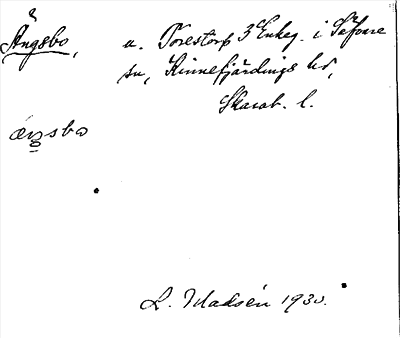 Ängsbo, u. Torestorp 3 Enkeg. i Säfvare
sn, Kinnefjärdings hd,
Skarab. l.
ængsbo
L. Madsén 1930.